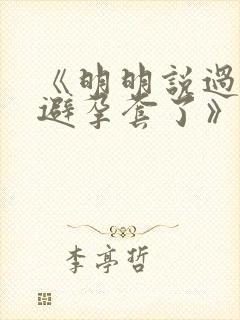 《明明說過
避孕套了》
李亭哲